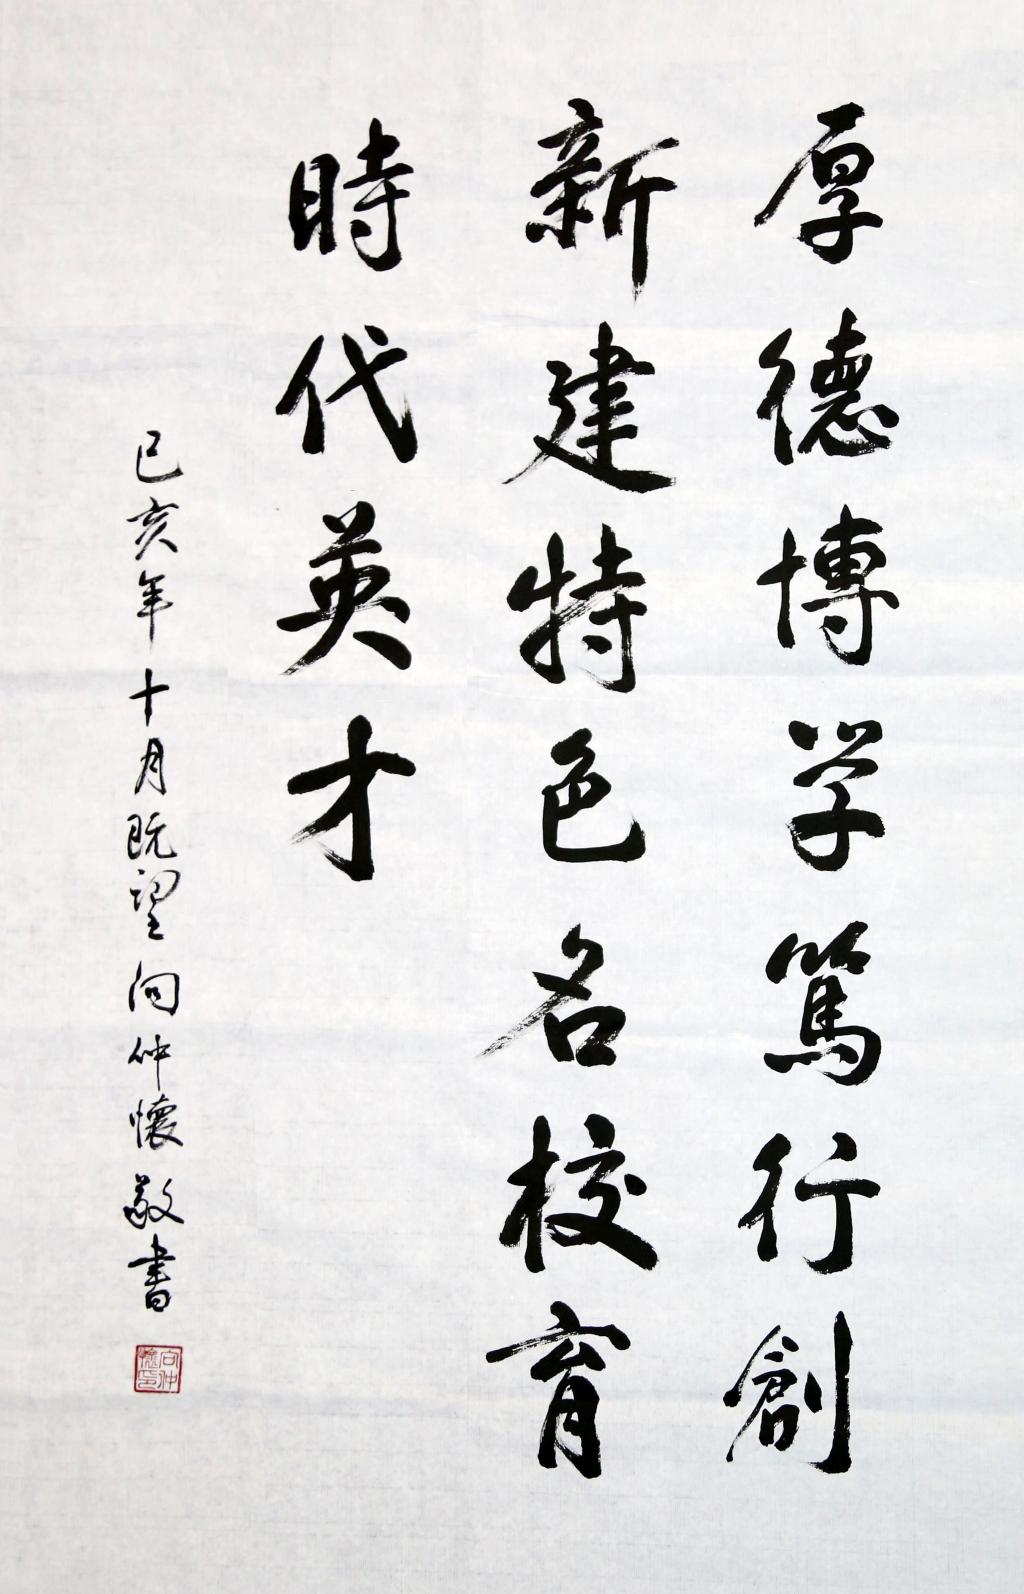 厚德博学篤行創
新建特色名校育
時代英才
己亥年十月既望向仲懷敬書
向仲懷印